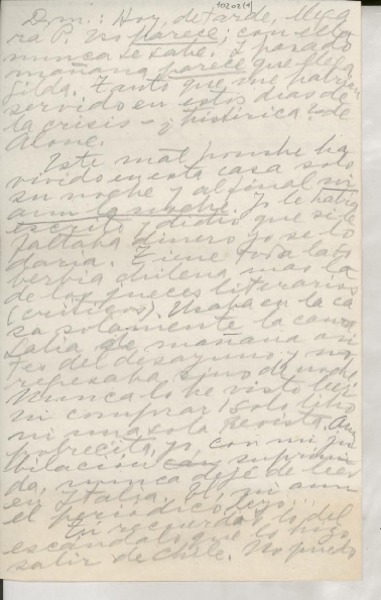 10202(1)
D.m.: Hoy, de tarde, llega
ra P. No parece; con ella
nunca se sabe. I pasado
mañana parece que llega
Gilda. Tanto que me habrían
servido en estos días de
la crisis - ¿histérica? de
Alone.
Este mal hombre ha
vivido en esta casa solo
su noche y al final ni
aun la noche. Yo le había
escrito diciendo que si le
faltaba dinero yo se lo
daría. Tiene toda la so
berbia chilena, mas la
de los jueces literarios
(críticos). Usaba en la ca
sa solamente la cama.
Salía de mañana an
tes del desayuno y no
regresaba sino de noche.
Nunca lo he visto leer
ni comprar 1 solo libro
ni una sola Revista. Aun
pobrecita, yo, con mi ju
bilación suprimi
da, nunca dejé de leer
en Italia. El ni aun
el periódico leyó.
Tú recuerdas lo del
escándalo que lo hizo
salir de Chile. No puedo